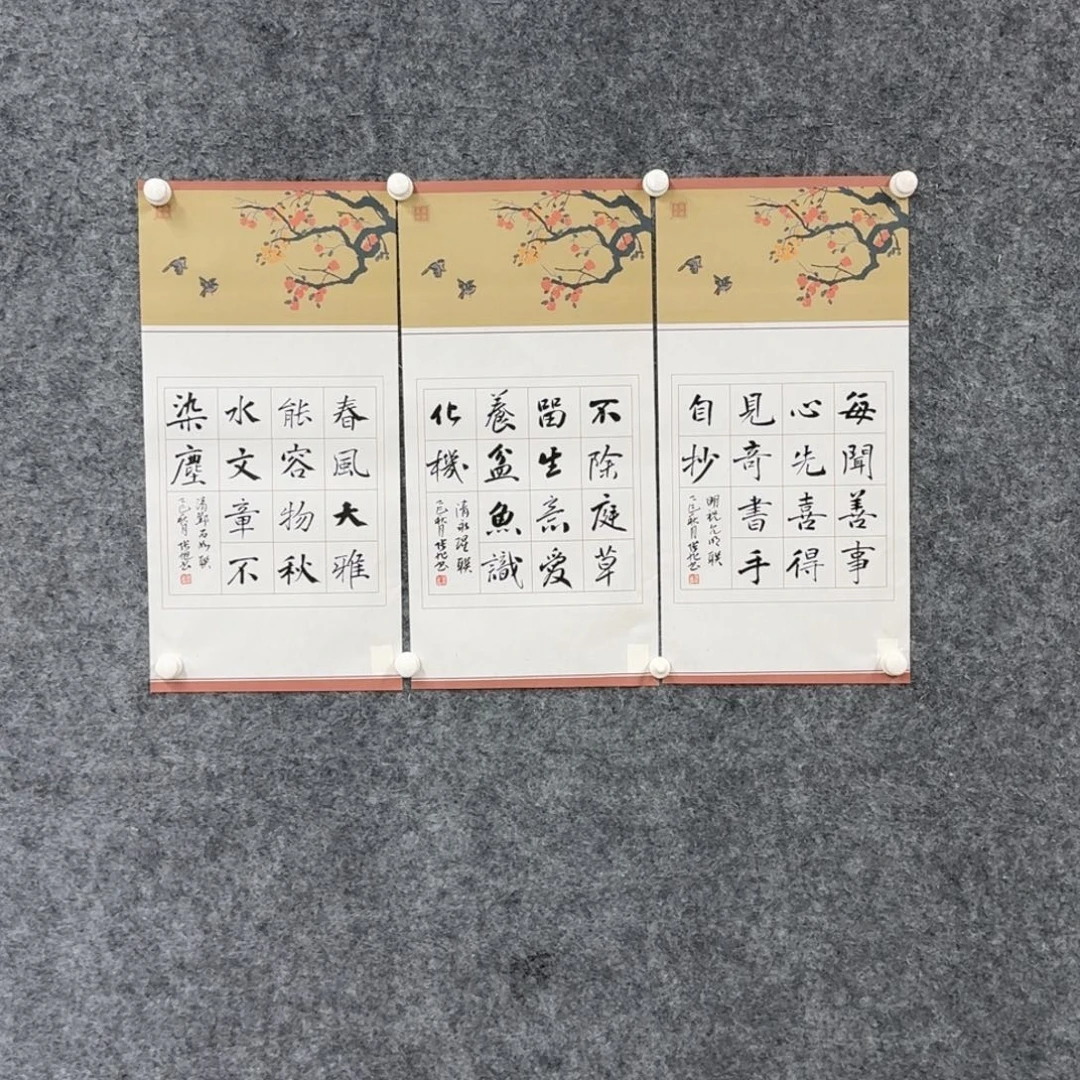 每聞善事
心先喜得
見奇書手
自抄
明祝允明联
乙巳秋月
不除庭草
留生意愛
養盆魚識
化機
清永瑆联
乙巳秋月
春風大雅
能容物秋
水文章不
染塵
清鄧石如联
乙巳秋月